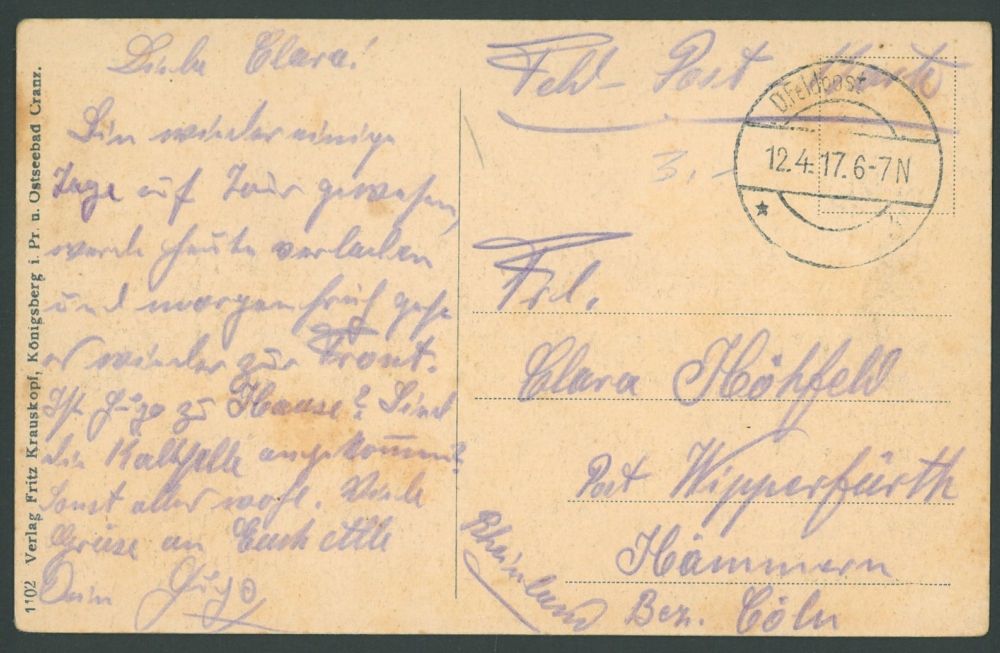 Liebe Clara!
Bin wieder einige
Tage auf Tour gewesen,
werde heute verladen
und morgen früh geht
es wieder zur Front.
Ist Hugo zu Hause? Sind
die Kalbfelle angekommen?
Sonst alles wohl. Viele
Grüsse an Euch Alle
Dein Hugo
Feld-Post Karte
D.Feldpost
12.4.17.6-7N
3.-
Frl.
Clara Höhfeld
Post Wipperfürth
Hämmern
Rheinland
Bez. Cöln
1102 Verlag Fritz Krauskopf, Königsberg i. Pr. u. Ostseebad Cranz.